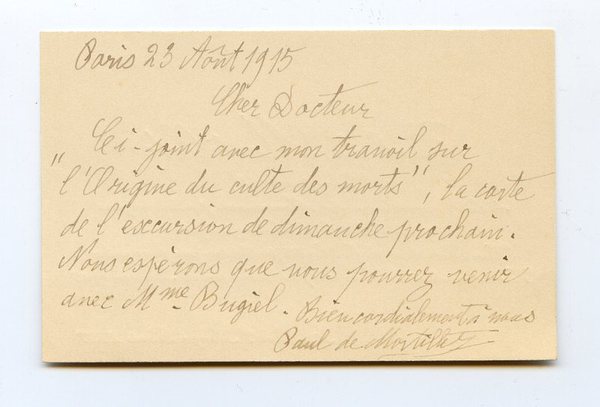 Paris 23 Août 1915
Cher Docteur
Ci-joint avec mon travail sur
"l'Origine du culte des morts", la carte
de l'excursion de dimanche prochain.
Nous espérons que vous pourrez venir
avec Mme Bugiel. Bien cordialement à vous
Paul de Mortillet